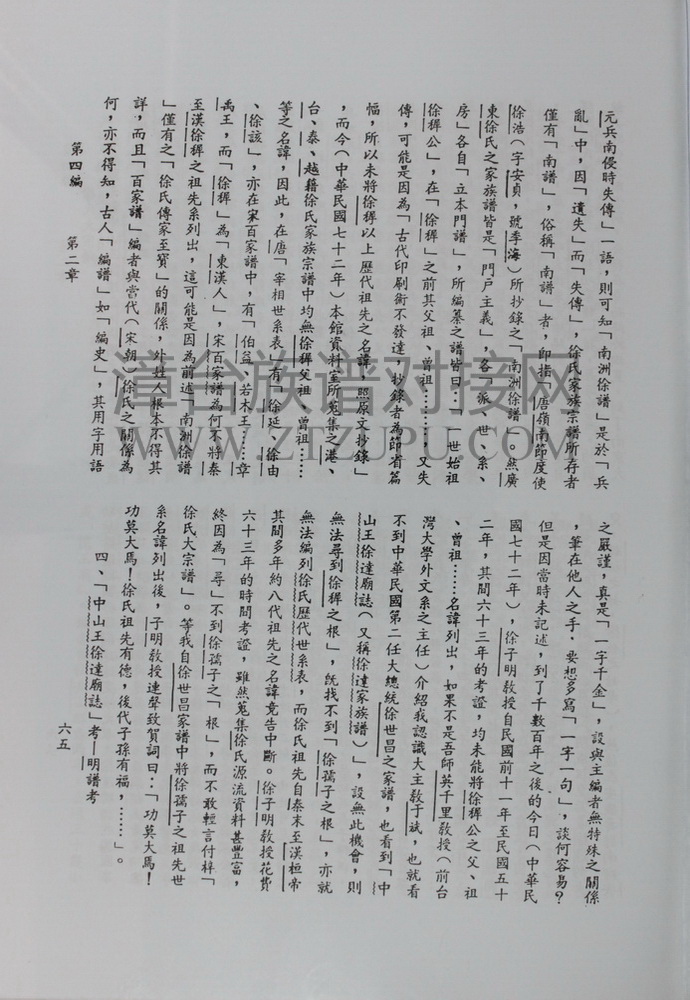 元兵南侵時失傳」一語，則可知「南洲徐譜」是於「兵
亂」中，因「遺失」而「失傳」，徐氏家族宗譜所存者
僅有「南譜」，俗稱「南譜」者，即指「唐嶺南節度使
徐浩（字安貞，號季海）所抄錄之「南洲徐譜」。然廣
東徐氏之家族譜皆是「門戶主義」，各「派、世、系、
房」各自「立本門譜」，所編纂之譜皆曰：「一世始祖
徐樨公」，在「徐樨」之前其父祖、曾祖………，又失
傳，可能是因為「古代印刷術不發達，抄錄者為節省篇
幅，所以未將徐樨以上歷代祖先之名諱，照原文抄錄」
，而今（中華民國七十二年）本館資料室所蒐集之港、
台、泰、越籍徐氏家族宗譜中均無徐樨父祖、曾祖……
等之名諱，因此，在唐「宰相世系表」有「徐延、徐由
、徐該」，亦在宋百家譜中，有「伯益、若木王……章
禹王，而「徐樨」為「東漢人」，宋百家譜為何不將秦
至漢徐樨之祖先系列出，這可能是因為前述「南洲徐譜
」僅有之「徐氏傳家至寶」的關係，外姓人根本不得其
詳，而且「百家譜」編者與當代（宋朝）徐氏之關係為
何，亦不得知，古人「編譜」如「編史」，其用字用語
第四編　第二章
之嚴謹，真是「一字千金」，設與主編者無特殊之關係
，筆在他人之手．要想多寫「一字一句」，談何容易？
但是因當時未記述，到了千數百年之後的今日（中華民
國七十二年），徐子明教授自民國前十一年至民國五十
二年，其間六十三年的考證，均未能將徐樨公之父、祖
、曾祖……名諱列出，如果不是吾師英千里教授（前台
灣大學外文系之主任）介紹我認識大主教于斌，也就看
不到中華民國第二任大總統徐世昌之家譜，也看到「中
山王徐達廟誌（又稱徐達家族譜）」，設無此機會，則
無法尋到徐樨之根」，既找不到「徐孺子之根」，亦就
無法編列徐氏歷代世系表，而徐氏祖先自秦末至漢桓帝
其間多年約八代祖先之名諱竟告中斷。徐子明教授花費
六十三年的時間考證，雖然蒐集徐氏源流資料甚豐富，
終因為「尋」不到徐孺子之「根」，而不敢輕言付梓「
徐氏大宗譜」。等我自徐世昌家譜中將徐孺子之祖先世
系名諱列出後，子明教授連聲致賀詞曰：「功莫大焉！
功莫大焉！徐氏祖先有德，後代子孫有福，……」。
四、「中山王徐達廟誌」考—明譜考
六五
漳台族谱对接网
WWW.ZTZUPU.COM